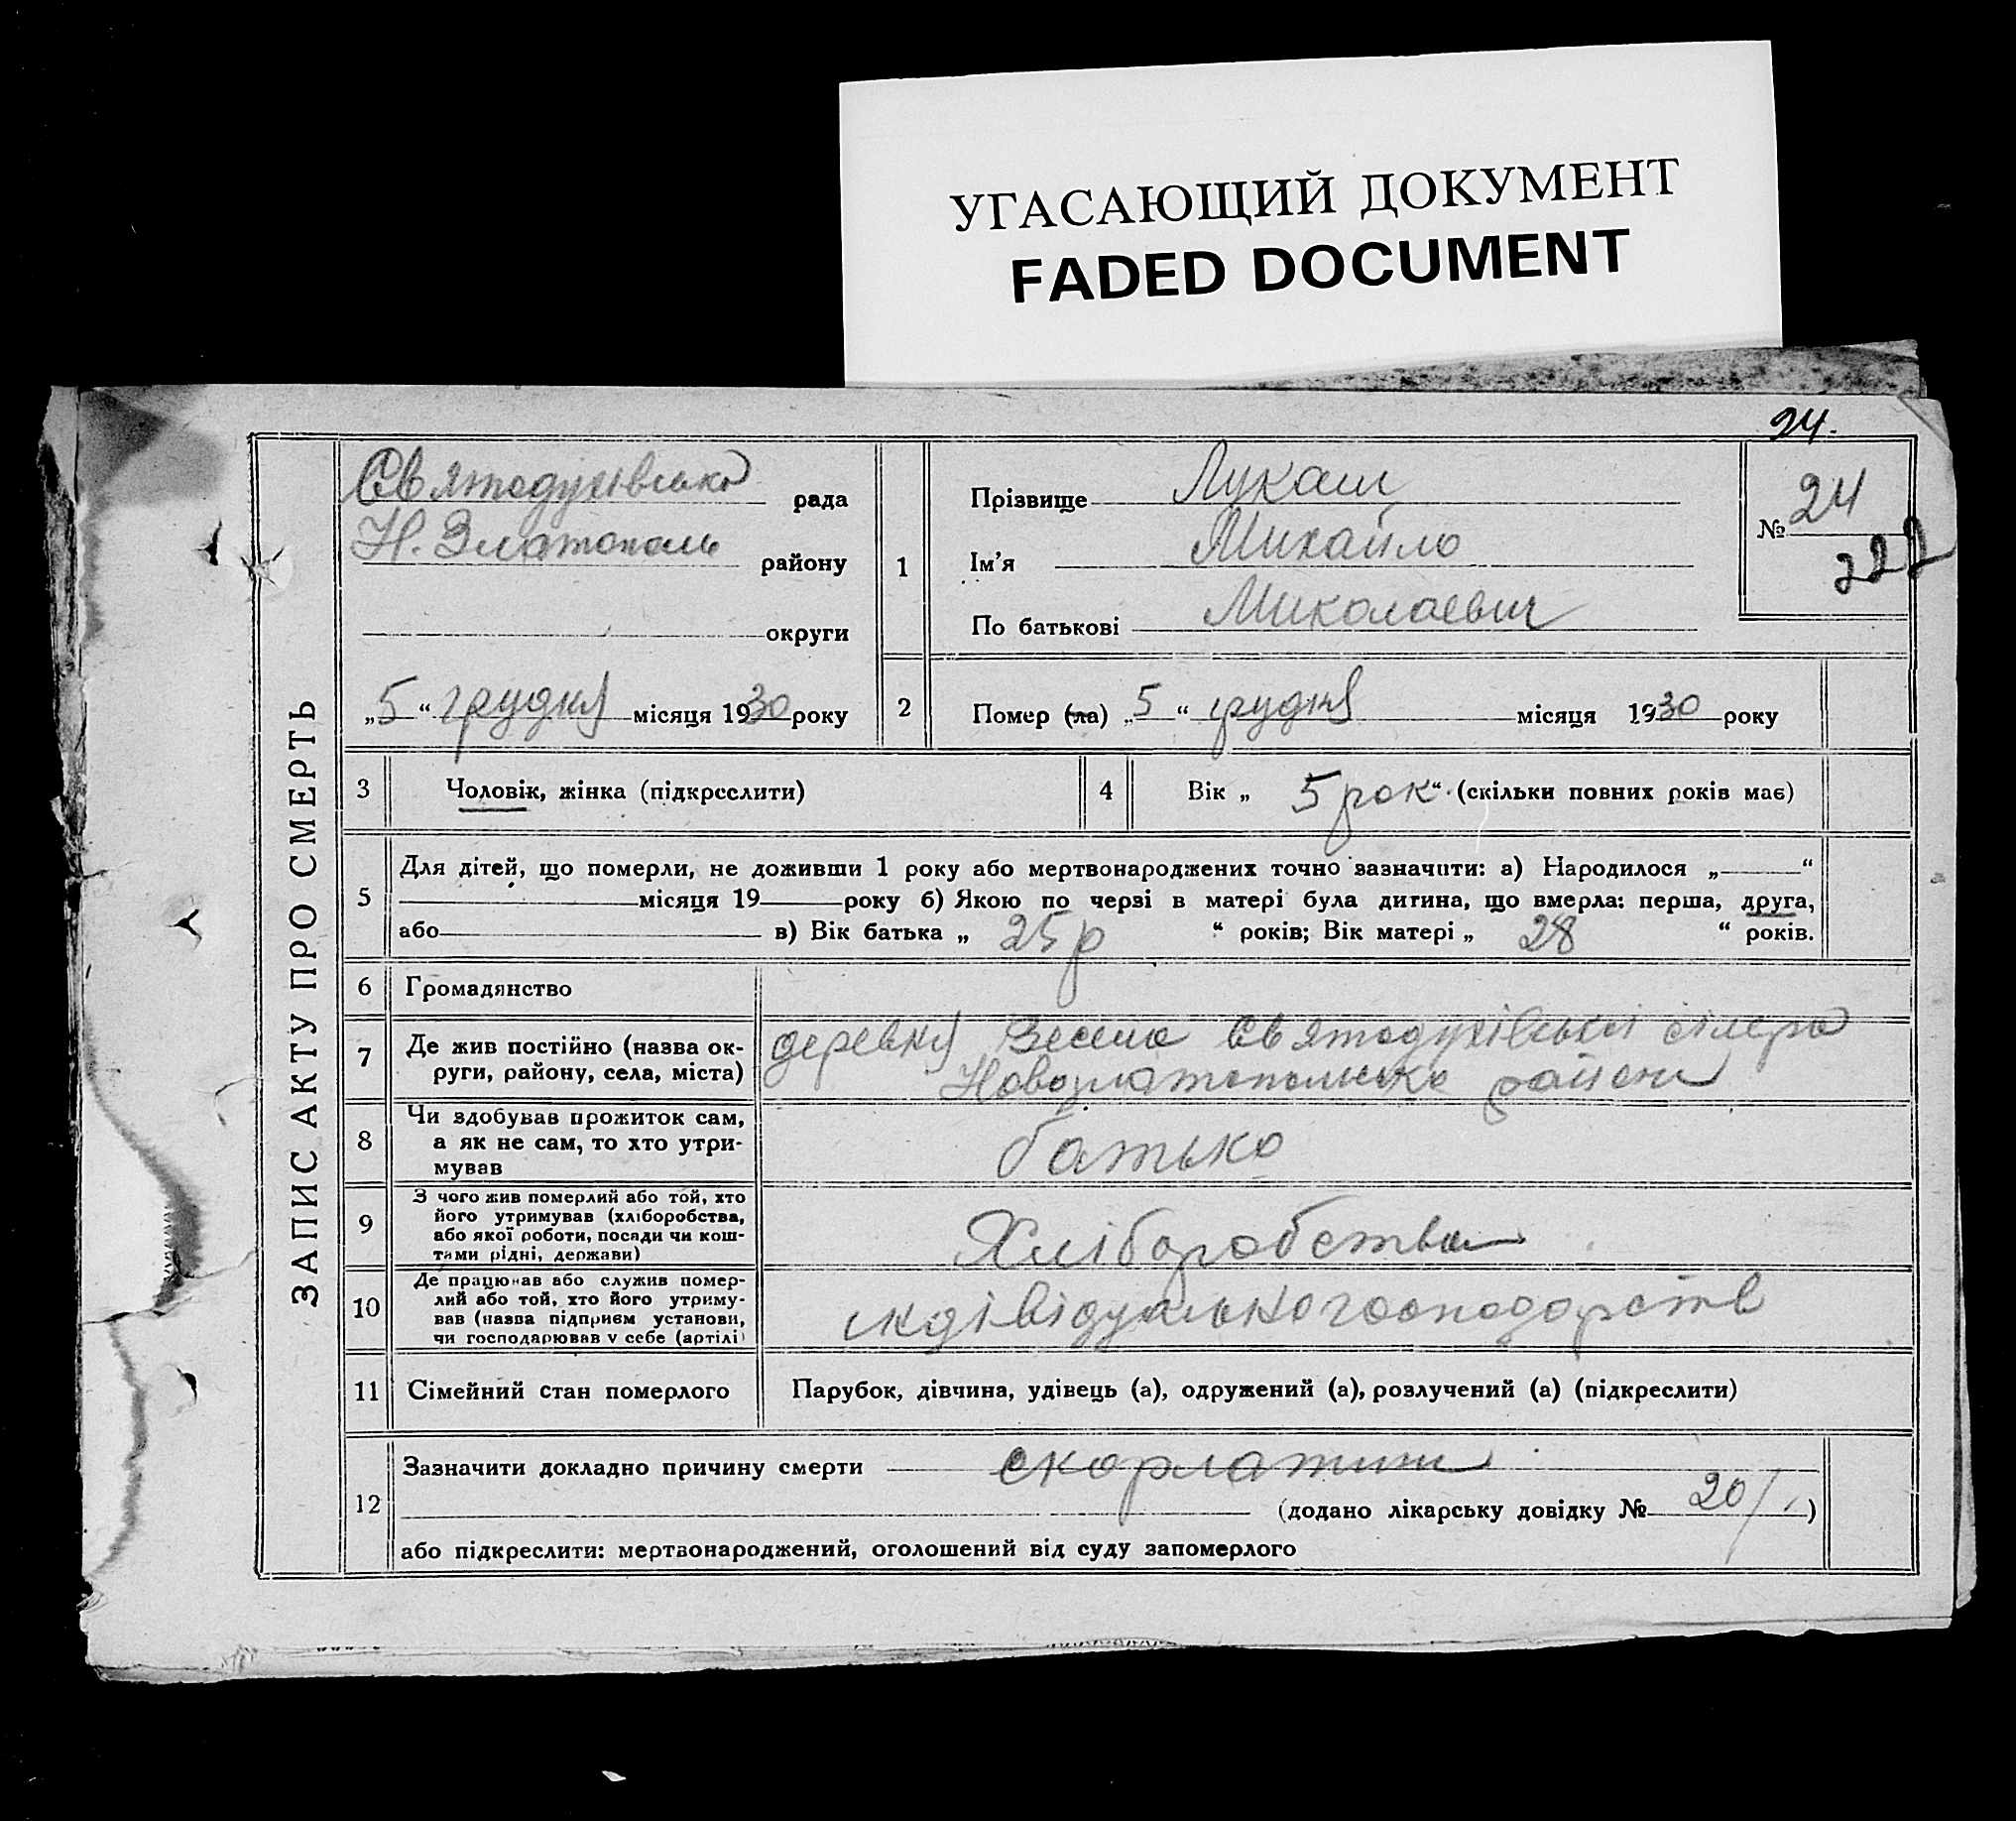 УГАСАЮЩИЙ ДОКУМЕНТ
FADED DOCUMENT
24.
ЗАПИС АКТУ ПРО СМЕРТЬ
Святодухівська рада
Н. Златополь району
округи
„5“ грудня місяця 1930 року
1
Прізвище Лукаш
Ім'я Михайло
По батькові Миколаевич
№ 24
222
2
Помер (ла) „5“ грудня місяця 1930 року
3 Чоловік, жінка (підкреслити)
4 Вік „5 рок“ (скільки повних років має)
5
Для дітей, що померли, не доживши 1 року або мертвонароджених точно зазначити: а) Народилося „——“
місяця 19—— року б) Якою по черзі в матері була дитина, що вмерла: перша, друга,
або —— в) Вік батька „25 р“ років; Вік матері „28“ років.
6 Громадянство
7
Де жив постійно (назва ок-
руги, району, села, міста)
деревня Святодухівської
району
8
Чи здобував прожиток сам,
а як не сам, то хто утри-
мував
батько
9
З чого жив померлий або той, хто
його утримував (хліборобства,
або якої роботи, посади чи кош-
тами рідні, держави)
Хліборобства
10
Де працював або служив помер-
лий або той, хто його утриму-
вав (назва підприєм установи,
чи господарював у себе (артілі)
11 Сімейний стан померлого
Парубок, дівчина, удівець (а), одружений (а), розлучений (а) (підкреслити)
12
Зазначити докладно причину смерти скорлатини
(додано лікарську довідку № 20/)
або підкреслити: мертвонароджений, оголошений від суду запомерлого